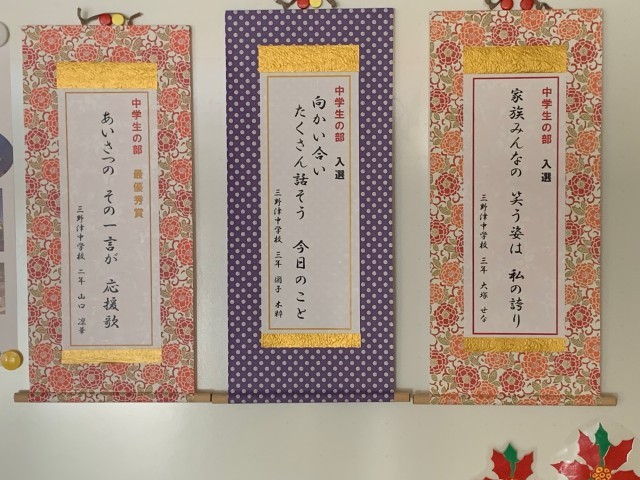 中学生の部 最優秀賞
あいさつの その一言が 応援歌
三野津中学校 二年 山口 凛華
中学生の部 入選
向かい合い
たくさん話そう 今日のこと
三野津中学校 三年 圀子 木粹
中学生の部 入選
家族みんなの 笑う姿は 私の誇り
三野津中学校 三年 大塚 せな